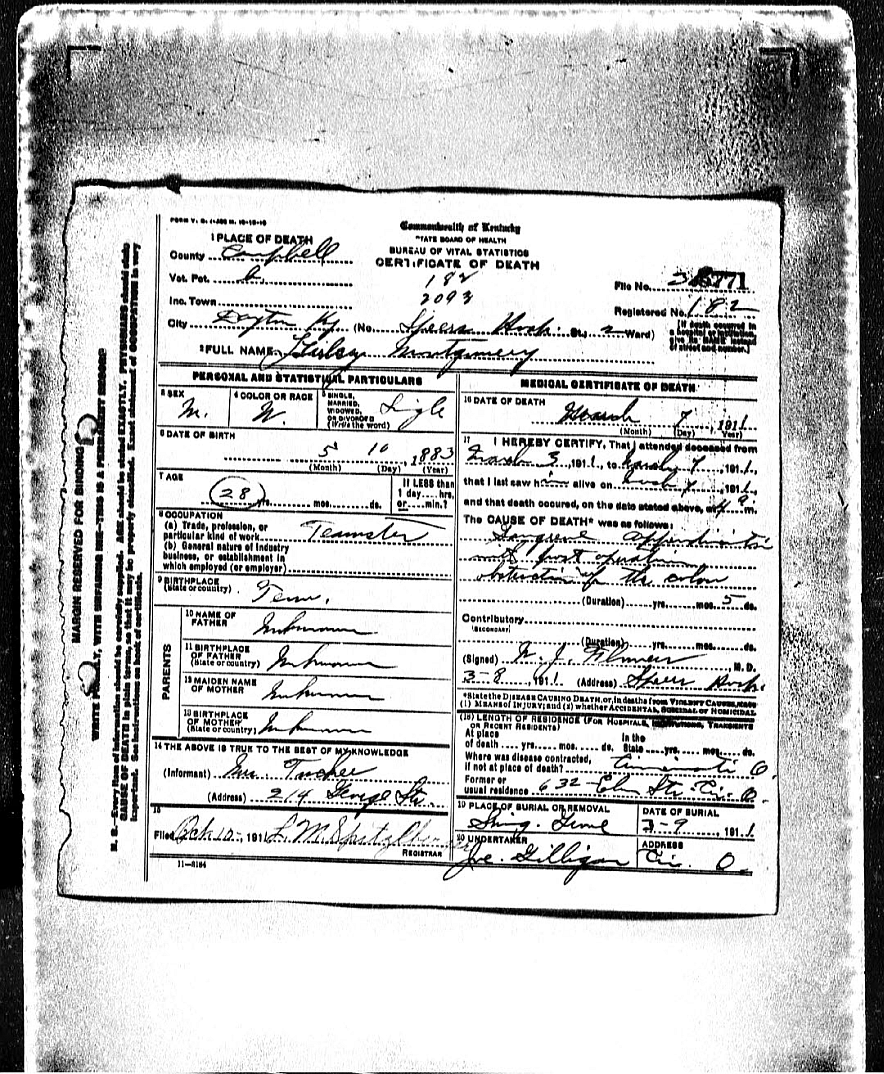 FORM V. S. 1-
Commonwealth of Kentucky
STATE BOARD OF HEALTH
BUREAU OF VITAL STATISTICS
CERTIFICATE OF DEATH
1 PLACE OF DEATH
County Campbell
Vot. Pct.
182
2093
File No. 771
Inc. Town
Registered No. 182
City Dayton Ky (No. Speers Hosp. St.; 2 Ward)
[If death occurred in a hospital or institution, give its NAME instead of street and number.]
2 FULL NAME Montgomery
PERSONAL AND STATISTICAL PARTICULARS
3 SEX M.
4 COLOR OR RACE W.
5 SINGLE, MARRIED, WIDOWED, OR DIVORCED (Write the word) Sigle
6 DATE OF BIRTH 5 10, 1883
(Month) (Day) (Year)
7 AGE 28 yrs. mos. ds.
If LESS than 1 day hrs. or min.?
8 OCCUPATION
(a) Trade, profession, or particular kind of work Teamster
(b) General nature of industry business, or establishment in which employed (or employer)
9 BIRTHPLACE (State or country) Tenn.
PARENTS
10 NAME OF FATHER Unknown
11 BIRTHPLACE OF FATHER (State or country) Unknown
12 MAIDEN NAME OF MOTHER Unknown
13 BIRTHPLACE OF MOTHER (State or country) Unknown
14 THE ABOVE IS TRUE TO THE BEST OF MY KNOWLEDGE
(Informant) Mrs Tucker
(Address) 214 George Str.
15
Filed Oct 10, 191 L. M.
REGISTRAR
11-
MEDICAL CERTIFICATE OF DEATH
16 DATE OF DEATH March 7, 1911
(Month) (Day) (Year)
17 I HEREBY CERTIFY, That I attended deceased from
March 3, 1911, to March 7, 1911,
that I last saw him alive on March 7, 1911,
and that death occured, on the date stated above, at m.
The CAUSE OF DEATH* was as follows:
appendicitis
with post operative
obstruction of the colon
(Duration) yrs. mos. 5 ds.
Contributory
(SECONDARY)
(Duration) yrs. mos. ds.
(Signed) M. D.
3-8, 1911 (Address) Speers Hosp.
*State the DISEASE CAUSING DEATH, or, in deaths from VIOLENT CAUSES, state
(1) MEANS OF INJURY; and (2) whether ACCIDENTAL, SUICIDAL OR HOMICIDAL
(18) LENGTH OF RESIDENCE (FOR HOSPITALS, INSTITUTIONS, TRANSIENTS
OR RECENT RESIDENTS)
At place of death yrs. mos. ds. In the State yrs. mos. ds.
Where was disease contracted, if not at place of death? Cincinnati O.
Former or usual residence 632 Elm Str. Cin. O.
19 PLACE OF BURIAL OR REMOVAL
DATE OF BURIAL
3-9, 1911
20 UNDERTAKER
Joe. Gilligan
ADDRESS
Cin. O.
MARGIN RESERVED FOR BINDING
WRITE PLAINLY, WITH UNFADING INK—THIS IS A PERMENT RECORD
N. B.—Every item of information should be carefully supplied. AGE should be stated EXACTLY. PHYSICIANS should state
CAUSE OF DEATH in plain terms, so that it may be properly classified. Exact statement of OCCUPATION is very
important. See instructions on back of certificate.